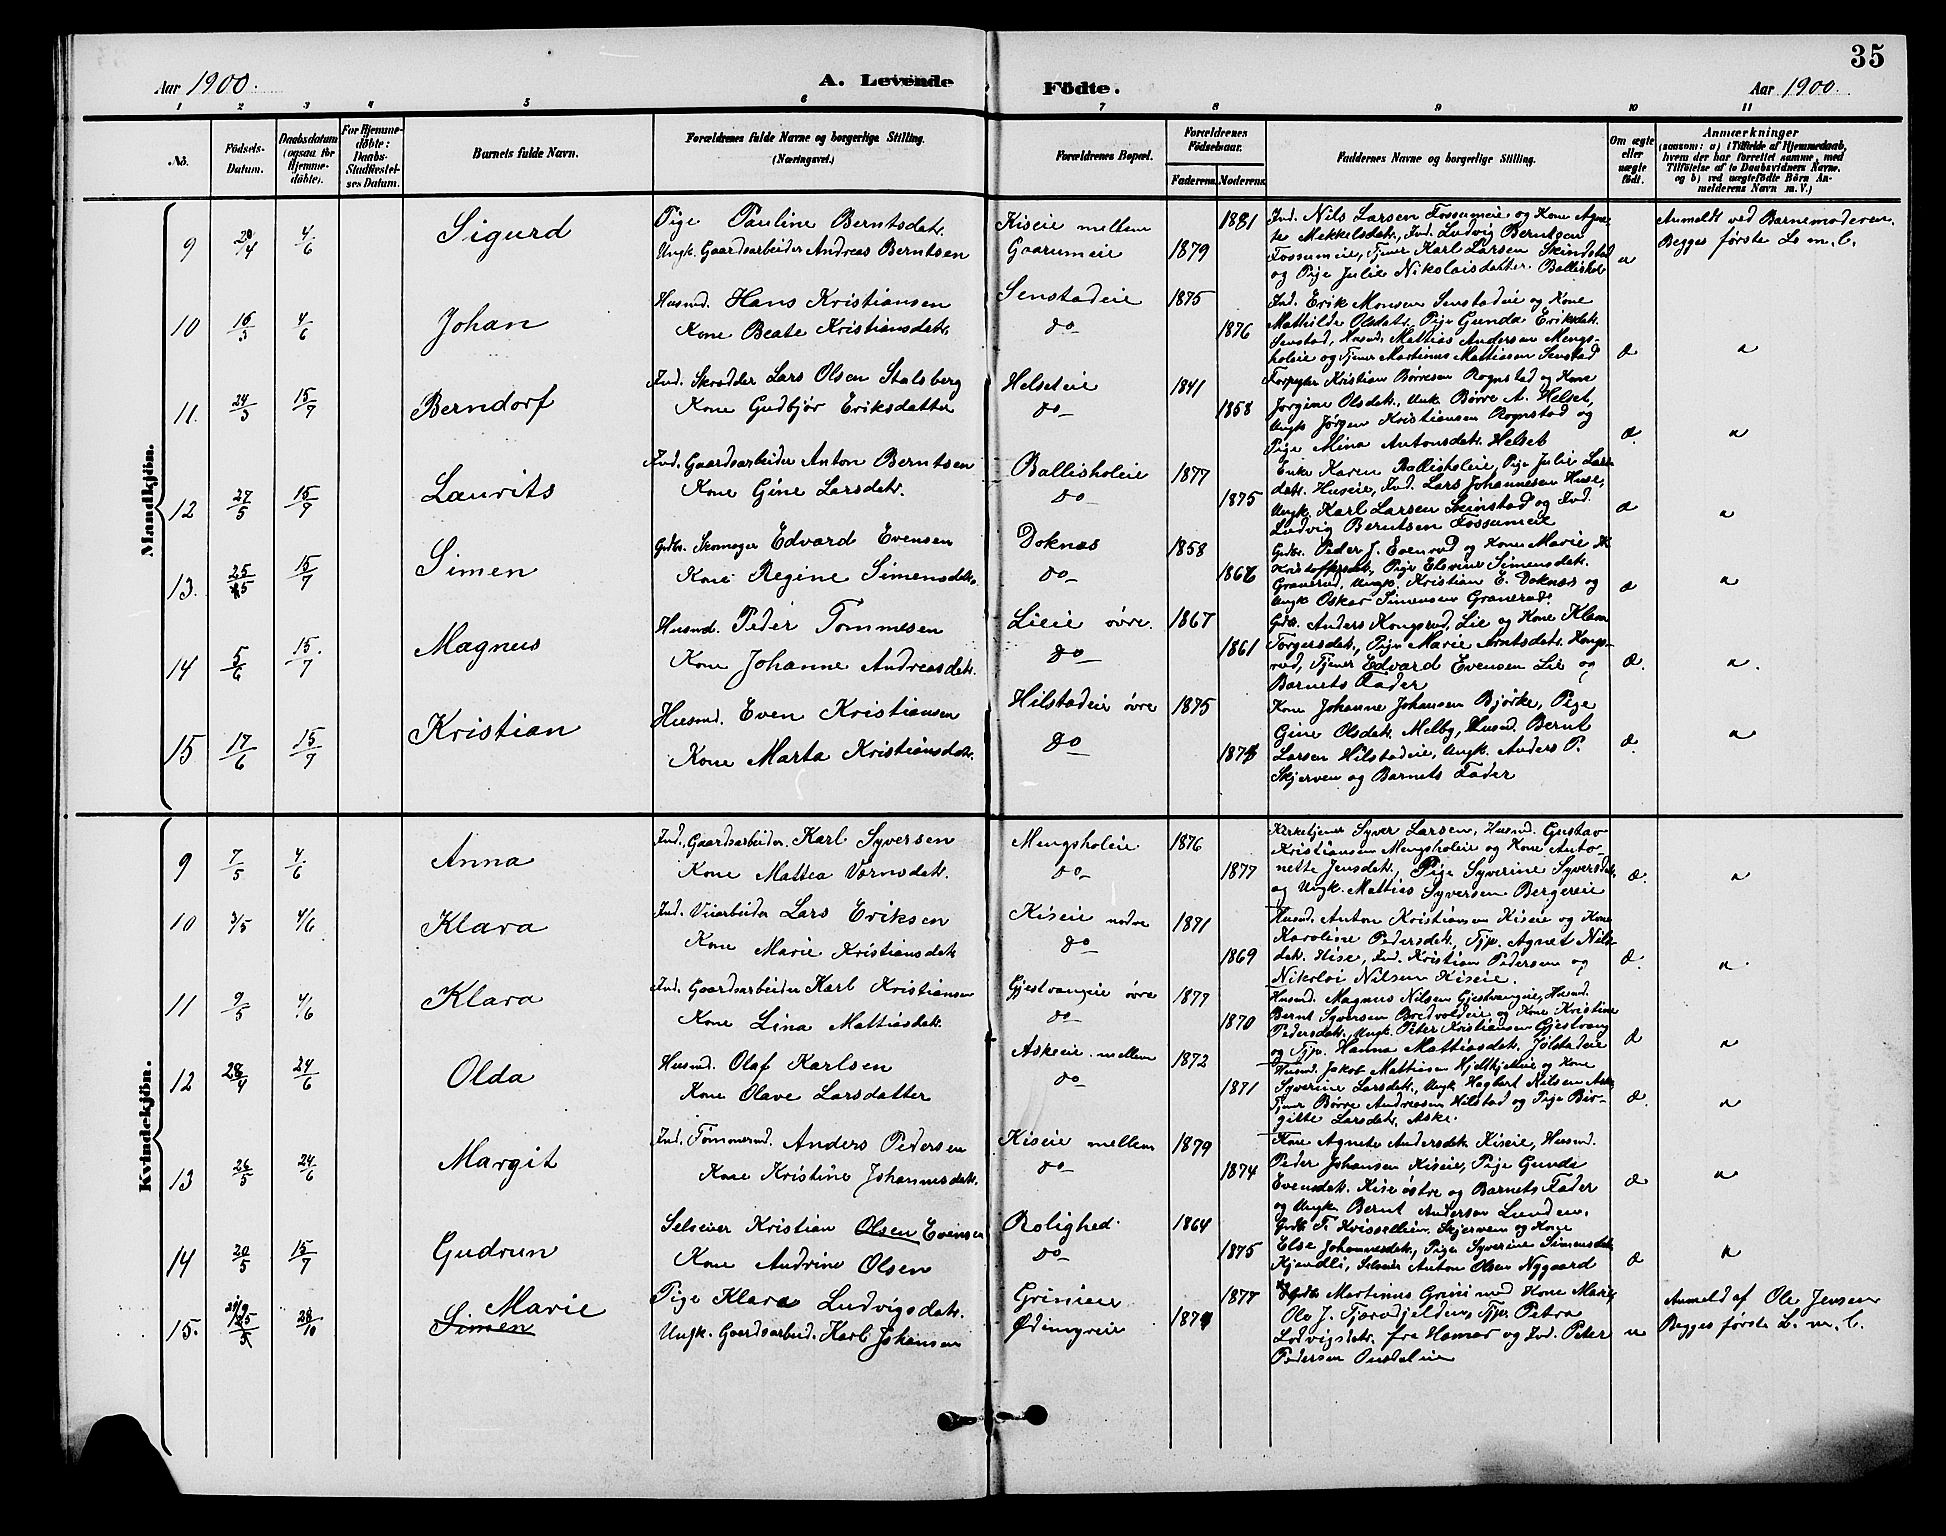 35
Aar 1900.
A. Levende Födte.
Aar 1900.
1 2 3 4 5 6 7 8 9 10 11
No.
Födsels-Datum.
Daabsdatum (ogsaa for Hjemme-döbte).
For Hjemme-döbte: Daabs-Stadfæstel-ses Datum.
Barnets fulde Navn.
Forældrenes fulde Navne og borgerlige Stilling. (Næringsvei.)
Forældrenes Bopæl.
Forældrenes Födselsaar.
Faderens. Moderens.
Faddernes Navne og borgerlige Stilling.
Om ægte eller uægte födt.
Anmærkninger
(saasom: a) i Tilfælde af Hjemmedaab, hvem der har forrettet samme, med Tilföielse af to Daabsvidners Navne, og b) ved uægtefödte Börn An-melderens Navn m. V.)
Mandkjön.
9 4/6 Sigurd
Pige Pauline Berntsdatr.
Ungk. Gaardsarbeider Andreas Berntsen
Kiseie mellem
Gaarumeie
1879 1881
Ind. Nils Larsen Fossumeie og Kone Agne-
te Mekkelsdatr., Ind. Ludvig Berntsen
Fossumeie, Tjener Karl Larsen Skindstad
og Pige Julie Nikolaisdatter Ballishol
u
Anmeldt ved Barnemoderen.
Begges første L. m. C.
10 16/3 4/6 Johan
Husmd. Hans Kristiansen
Kone Beate Kristiansdatr.
Senstadeie
do
1875 1876
Ind. Erik Monsen Senstadeie og Kone
Mathilde Olsdatr., Pige Gunda Eriksdatr.
Senstad, Husmd. Mattias Andersen Mengs-
holeie og Tjener Martinus Mattiasen Senstad
æ
11. 24/3 15/7 Berndorf
Ind. Skrædder Lars Olsen Stalsberg
Kone Gudbjør Eriksdatter
Helseteie
do
1841 1858
Forpagter Kristian Børresen Rognstad og Kone
Jørgine Olsdatr., Ungk. Børre A. Helset,
Ungk. Jørgen Kristiansen Rognstad og
Pige Mina Antonsdatr. Helset
æ
12 27/5 15/7 Laurits
Ind. Gaardsarbeider Anton Berntsen
Kone Gine Larsdatr.
Ballisholeie
do
1877 1875
Enke Karen Ballisholeie, Pige Julie Lars-
datr. Huseie, Ind. Lars Johannesen Huse,
Ungk. Karl Larsen Skinstad og Ind.
Ludvig Berntsen Fossumeie
æ
13. 25/5 15/7 Simen
Gdbr. Skomager Edvard Evensen
Kone Regine Simensdatr.
Doknæs
do
1858
Gdbr. Peder J. Evenrud og Kone Marie
Pige Elevine Simensdatr.
Granerud, Ungk. Kristian E. Doknæs og
Ungk. Oskar Simensen Granerud.
æ
14 5/6 15/7 Magnus
Husmd. Peder Tommesen
Kone Johanne Andreasdatr.
Lieie øvre.
do
1867 1861
Gdbr. Anders Kongsrud, Lie og Kone
Torgersdatr., Pige Marie Arntsdatr. Kongs-
rud, Tjener Edvard Evensen Lie og
Barnets Fader
æ.
15 17/6 15/7 Kristian
Husmd. Even Kristiansen
Kone Marta Kristiansdatr.
Hilstadeie øvre
do
1875
Kone Johanne Johansen Bjørke, Pige
Gine Olsdatr. Melby, Husmd. Bernt
Larsen Hilstadeie, Ungk. Anders P.
Skjerven og Barnets Fader
æ.
Kvindekjön.
9 7/5 4/6 Anna
Ind. Gaardsarbeider Karl Syversen
Kone Mattea
Mengsholeie
do
1876 1877
Kirketjener Syver Larsen, Husmd. Gustav
Kristiansen Mengsholeie og Kone Anto-
nette Jensdatr., Pige Syverine Syversdatr.
og Ungk. Mattias Syversen Bergereie
æ.
10 3/5 4/6 Klara
Ind. Veiarbeider Lars Eriksen
Kone Marie Kristiansdatr.
Kiseie nedre
do
1871 1869
Husmd. Anton Kristiansen Kiseie og Kone
Karoline Pedersdatr., Tjp. Agnet Nils-
datr. Kise, Ind. Kristian Pedersen og
Nikolai Nilsen Kiseie.
æ.
11 9/5 4/6 Klara
Ind. Gaardsarbeider Karl Kristiansen
Kone Lina Mattiasdatr.
Gjestvangeie øvre
do
1877 1870
Husmd. Magnus Nilsen Gjestvangeie, Husmd.
Bernt Syversen Bredvoldeie og Kone Kristine
Pedersdatr., Ungk. Peter Kristiansen Gjestvang
og Tjp. Hanna Mattiasdatr. Jølstadeie
æ
12 28/4 24/6 Olda
Husmd. Olaf Karlsen
Kone Olave Larsdatter
Askeeie mellem
do
1872 1871
Husmd. Jakob Mattisen og Kone
Syverine Larsdatr., Ungk. Hagbart Nilsen Aske,
Tjener Børre Andreasen Hilstad og Pige Bir-
gitte Larsdatr. Aske.
æ.
13 26/5 24/6 Margit
Ind. Tømmermd. Anders Pedersen
Kone Kristine Johannesdatr.
Kiseie mellem
do
1879 1874
Kone Agnete Andersdatr. Kiseie, Husmd.
Peder Johansen Kiseie, Pige Gunda
Evensdatr. Kise østre og Barnets Fader
og Ungk. Bernt Andersen Lunden.
æ
14 20/5 15/7 Gudrun
Selveier Kristian Olsen Evensen
Kone Andrine Olsen
Rolighed
do
1864 1875
Gdbr. F. Skjerven og Kone
Else Johannesdatr., Pige Syverine Simensdatr.
Kjendli, Selveier Anton Olsen Nygaard
æ
15. 28/10 Marie
Simen
Pige Klara Ludvigsdatr.
Ungk. Gaardsarbeid. Karl Johansen
Grinieie
Ødemyreie
1877
Martinus Grini med Kone Marie,
Ole J. Tjærafjelden, Tjp. Petra
Lodvigsdatr. fra Hamar og Ind. Peter
Pedersen
u
Anmeld af Ole Jensen
Begges første L. m. C.